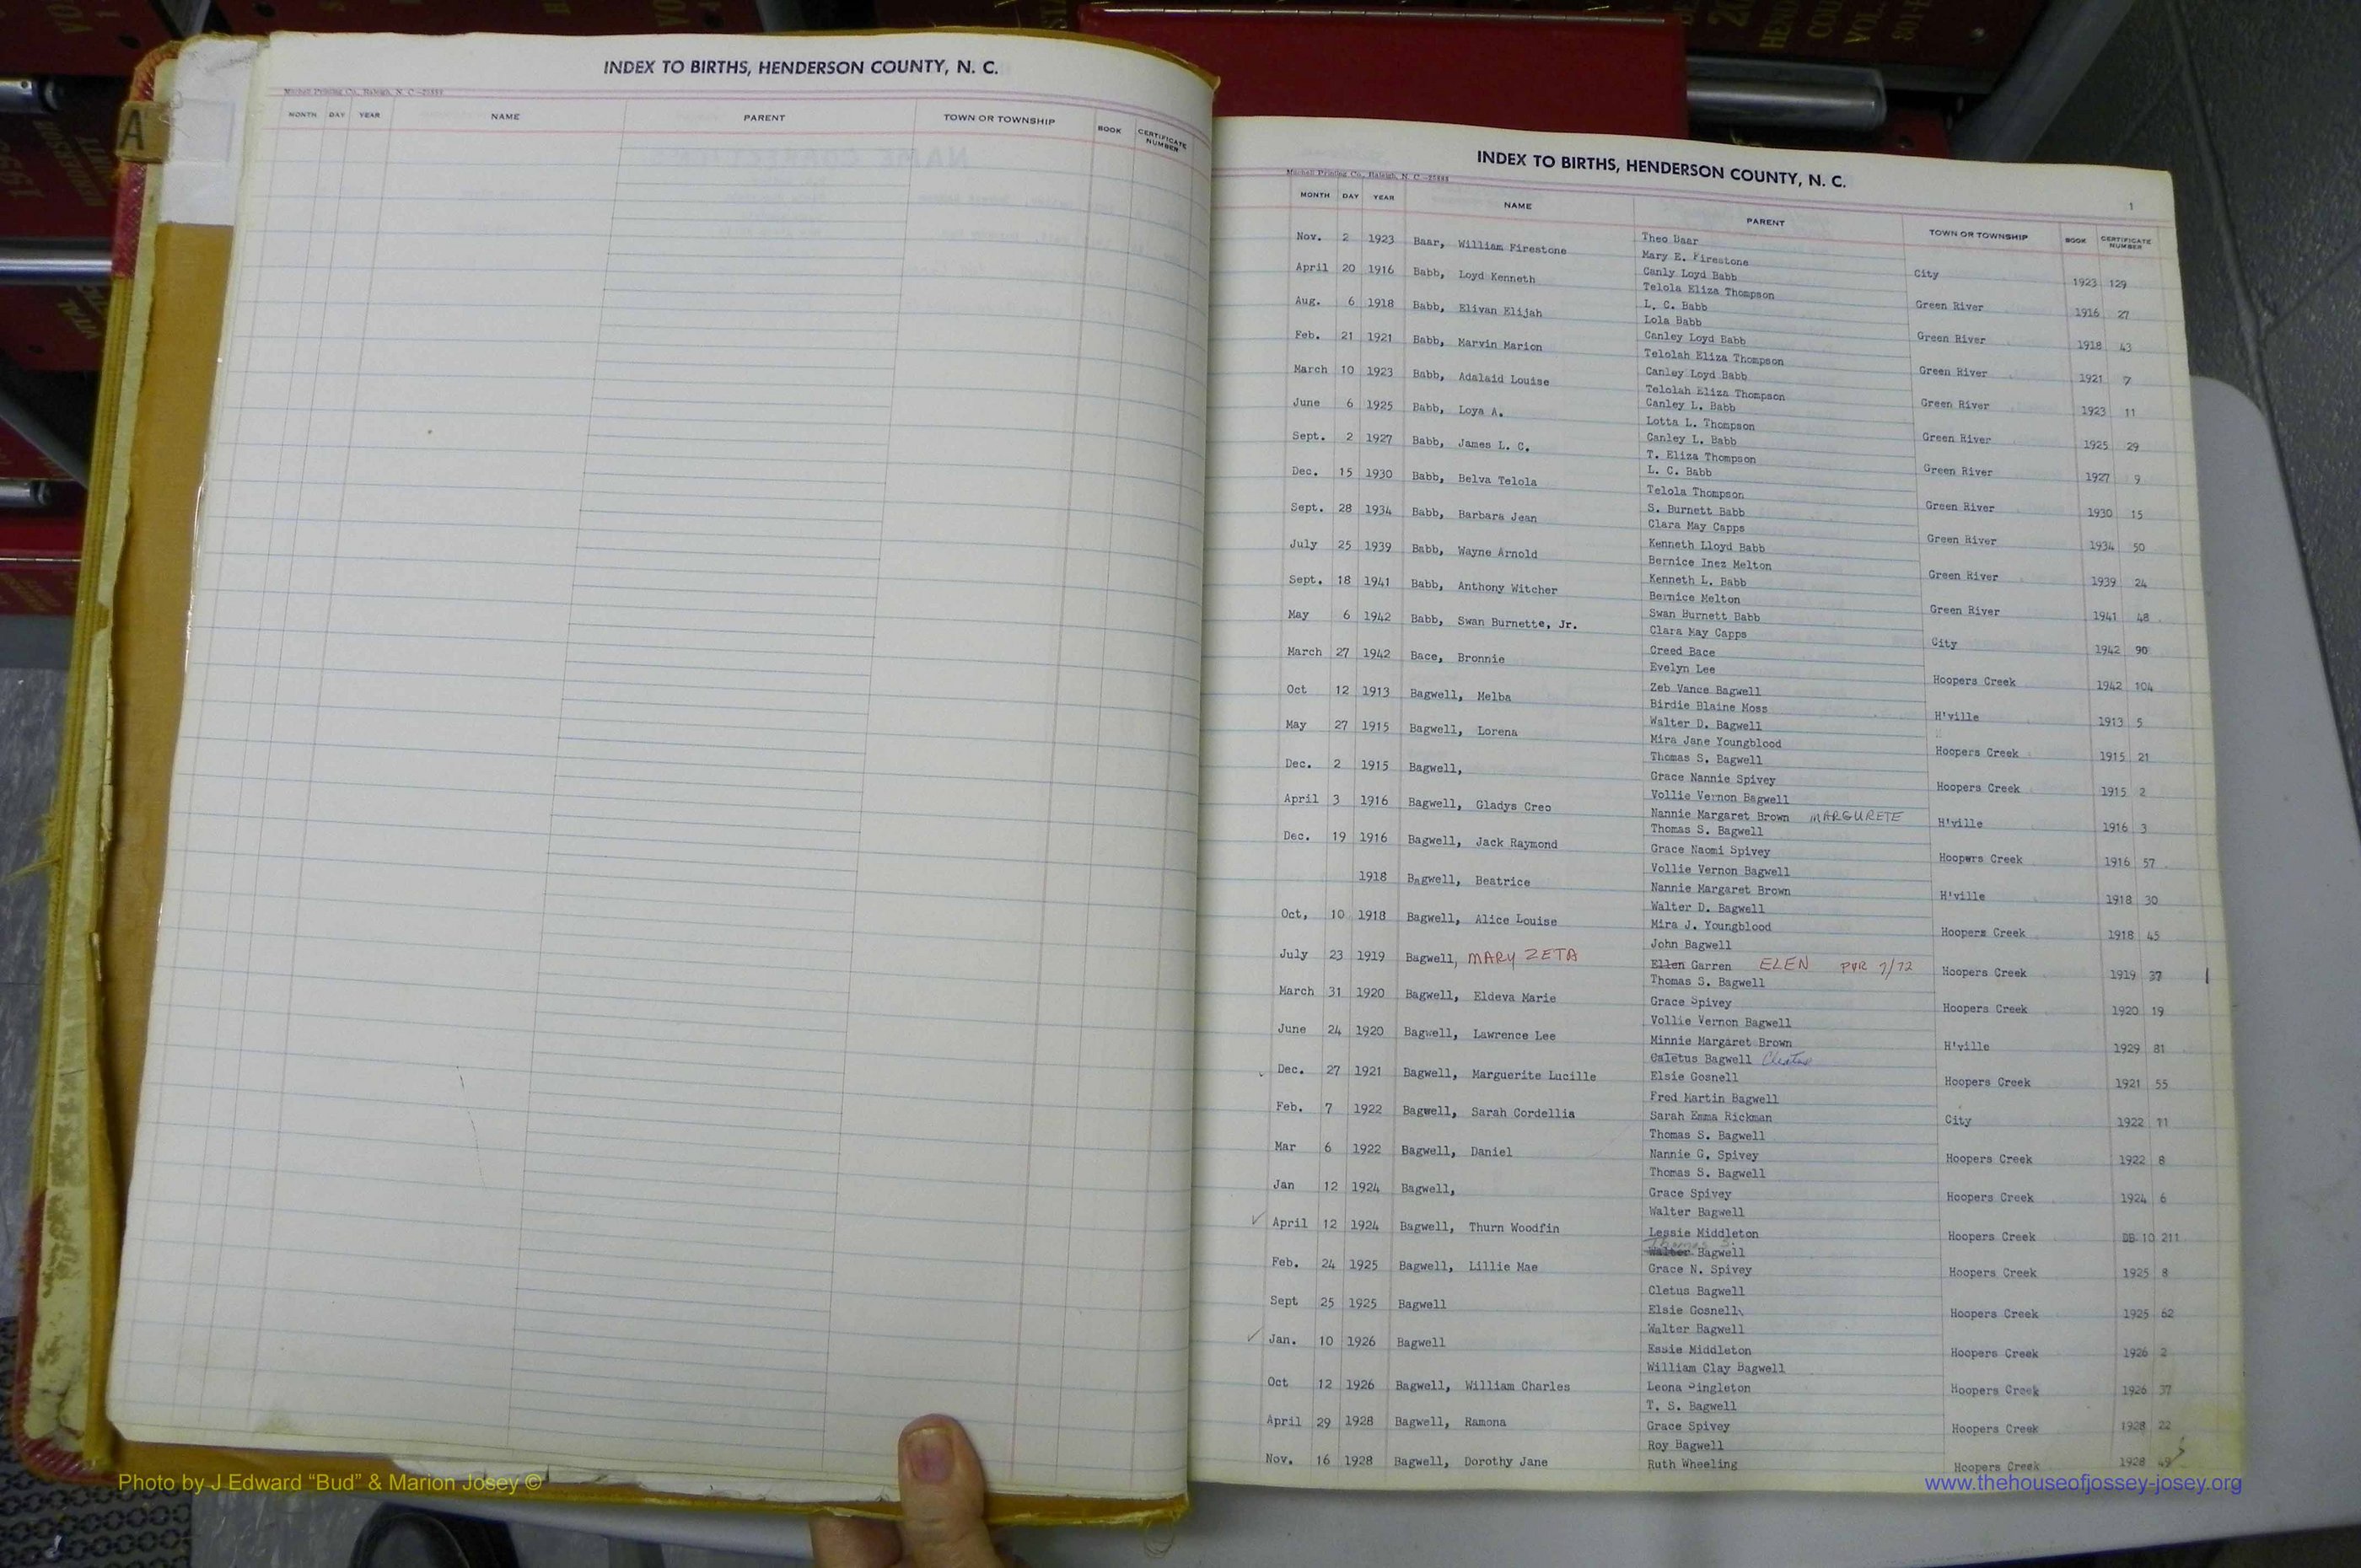 INDEX TO BIRTHS, HENDERSON COUNTY, N. C.
Mitchell Printing Co., Raleigh, N. C.—21888
MONTH DAY YEAR NAME PARENT TOWN OR TOWNSHIP BOOK CERTIFICATE NUMBER
A
INDEX TO BIRTHS, HENDERSON COUNTY, N. C.
Mitchell Printing Co., Raleigh, N. C.—21888
1
MONTH DAY YEAR NAME PARENT TOWN OR TOWNSHIP BOOK CERTIFICATE NUMBER
Nov. 2 1923 Baar, William Firestone Theo Baar
Mary E. Firestone City 1923 129
April 20 1916 Babb, Loyd Kenneth Canly Loyd Babb
Telola Eliza Thompson Green River 1916 27
Aug. 6 1918 Babb, Elivan Elijah L. C. Babb
Lola Babb Green River 1918 43
Feb. 21 1921 Babb, Marvin Marion Canley Loyd Babb
Telolah Eliza Thompson Green River 1921 7
March 10 1923 Babb, Adalaid Louise Canley Loyd Babb
Telolah Eliza Thompson Green River 1923 11
June 6 1925 Babb, Loya A. Canley L. Babb
Lotta L. Thompson Green River 1925 29
Sept. 2 1927 Babb, James L. C. Canley L. Babb
T. Eliza Thompson Green River 1927 9
Dec. 15 1930 Babb, Belva Telola L. C. Babb
Telola Thompson Green River 1930 15
Sept. 28 1934 Babb, Barbara Jean S. Burnett Babb
Clara May Capps Green River 1934 50
July 25 1939 Babb, Wayne Arnold Kenneth Lloyd Babb
Bernice Inez Melton Green River 1939 24
Sept. 18 1941 Babb, Anthony Witcher Kenneth L. Babb
Bernice Melton Green River 1941 48
May 6 1942 Babb, Swan Burnette, Jr. Swan Burnett Babb
Clara May Capps City 1942 90
March 27 1942 Bace, Bronnie Creed Bace
Evelyn Lee Hoopers Creek 1942 104
Oct 12 1913 Bagwell, Melba Zeb Vance Bagwell
Birdie Blaine Moss H'ville 1913 5
May 27 1915 Bagwell, Lorena Walter D. Bagwell
Mira Jane Youngblood Hoopers Creek 1915 21
Dec. 2 1915 Bagwell, Thomas S. Bagwell
Grace Nannie Spivey Hoopers Creek 1915 2
April 3 1916 Bagwell, Gladys Creo Vollie Vernon Bagwell
Nannie Margaret Brown MARGURETE H'ville 1916 3
Dec. 19 1916 Bagwell, Jack Raymond Thomas S. Bagwell
Grace Naomi Spivey Hoopers Creek 1916 57
1918 Bagwell, Beatrice Vollie Vernon Bagwell
Nannie Margaret Brown H'ville 1918 30
Oct, 10 1918 Bagwell, Alice Louise Walter D. Bagwell
Mira J. Youngblood Hoopers Creek 1918 45
July 23 1919 Bagwell, MARY ZETA John Bagwell
Ellen Garren ELEN PVR 7/72 Hoopers Creek 1919 37
March 31 1920 Bagwell, Eldeva Marie Thomas S. Bagwell
Grace Spivey Hoopers Creek 1920 19
June 24 1920 Bagwell, Lawrence Lee Vollie Vernon Bagwell
Minnie Margaret Brown H'ville 1929 81
Dec. 27 1921 Bagwell, Marguerite Lucille Caletus Bagwell
Elsie Gosnell Hoopers Creek 1921 55
Feb. 7 1922 Bagwell, Sarah Cordellia Fred Martin Bagwell
Sarah Emma Rickman City 1922 11
Mar 6 1922 Bagwell, Daniel Thomas S. Bagwell
Nannie G. Spivey Hoopers Creek 1922 8
Jan 12 1924 Bagwell, Thomas S. Bagwell
Grace Spivey Hoopers Creek 1924 6
✓ April 12 1924 Bagwell, Thurn Woodfin Walter Bagwell
Lessie Middleton Hoopers Creek DB 10 211
Thomas S.
Feb. 24 1925 Bagwell, Lillie Mae Walter Bagwell
Grace N. Spivey Hoopers Creek 1925 8
Sept 25 1925 Bagwell Cletus Bagwell
Elsie Gosnell Hoopers Creek 1925 62
✓ Jan. 10 1926 Bagwell Walter Bagwell
Essie Middleton Hoopers Creek 1926 2
Oct 12 1926 Bagwell, William Charles William Clay Bagwell
Leona Singleton Hoopers Creek 1926 37
April 29 1928 Bagwell, Ramona T. S. Bagwell
Grace Spivey Hoopers Creek 1928 22
Nov. 16 1928 Bagwell, Dorothy Jane Roy Bagwell
Ruth Wheeling Hoopers Creek 1928 49
Photo by J Edward “Bud” & Marion Josey ©
www.thehouseofjossey-josey.org